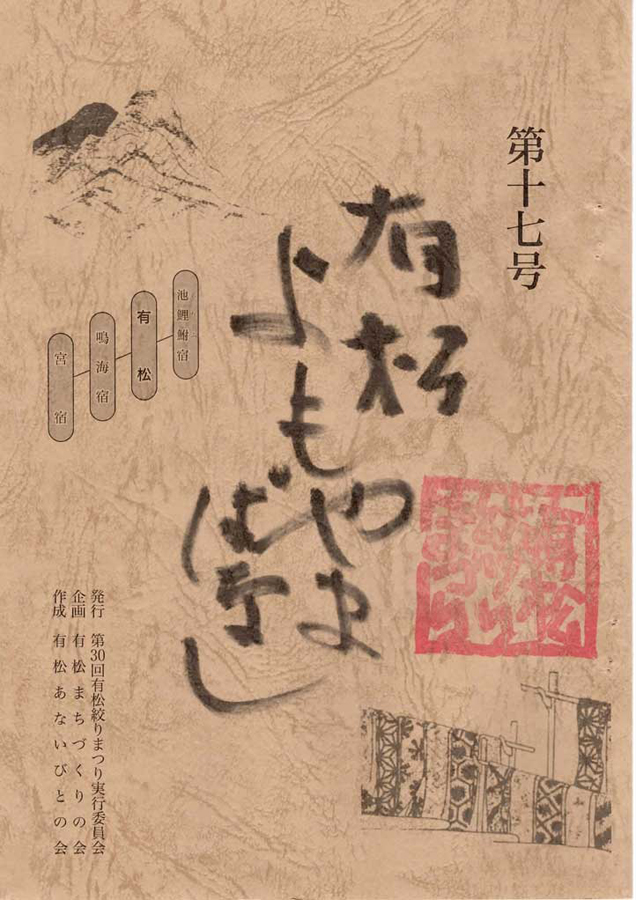 第十七号
有松
よもやま
ばなし
池鯉鮒宿
有松
鳴海宿
宮宿
発行 第30回有松絞りまつり実行委員会
企画 有松まちづくりの会
作成 有松あないびとの会